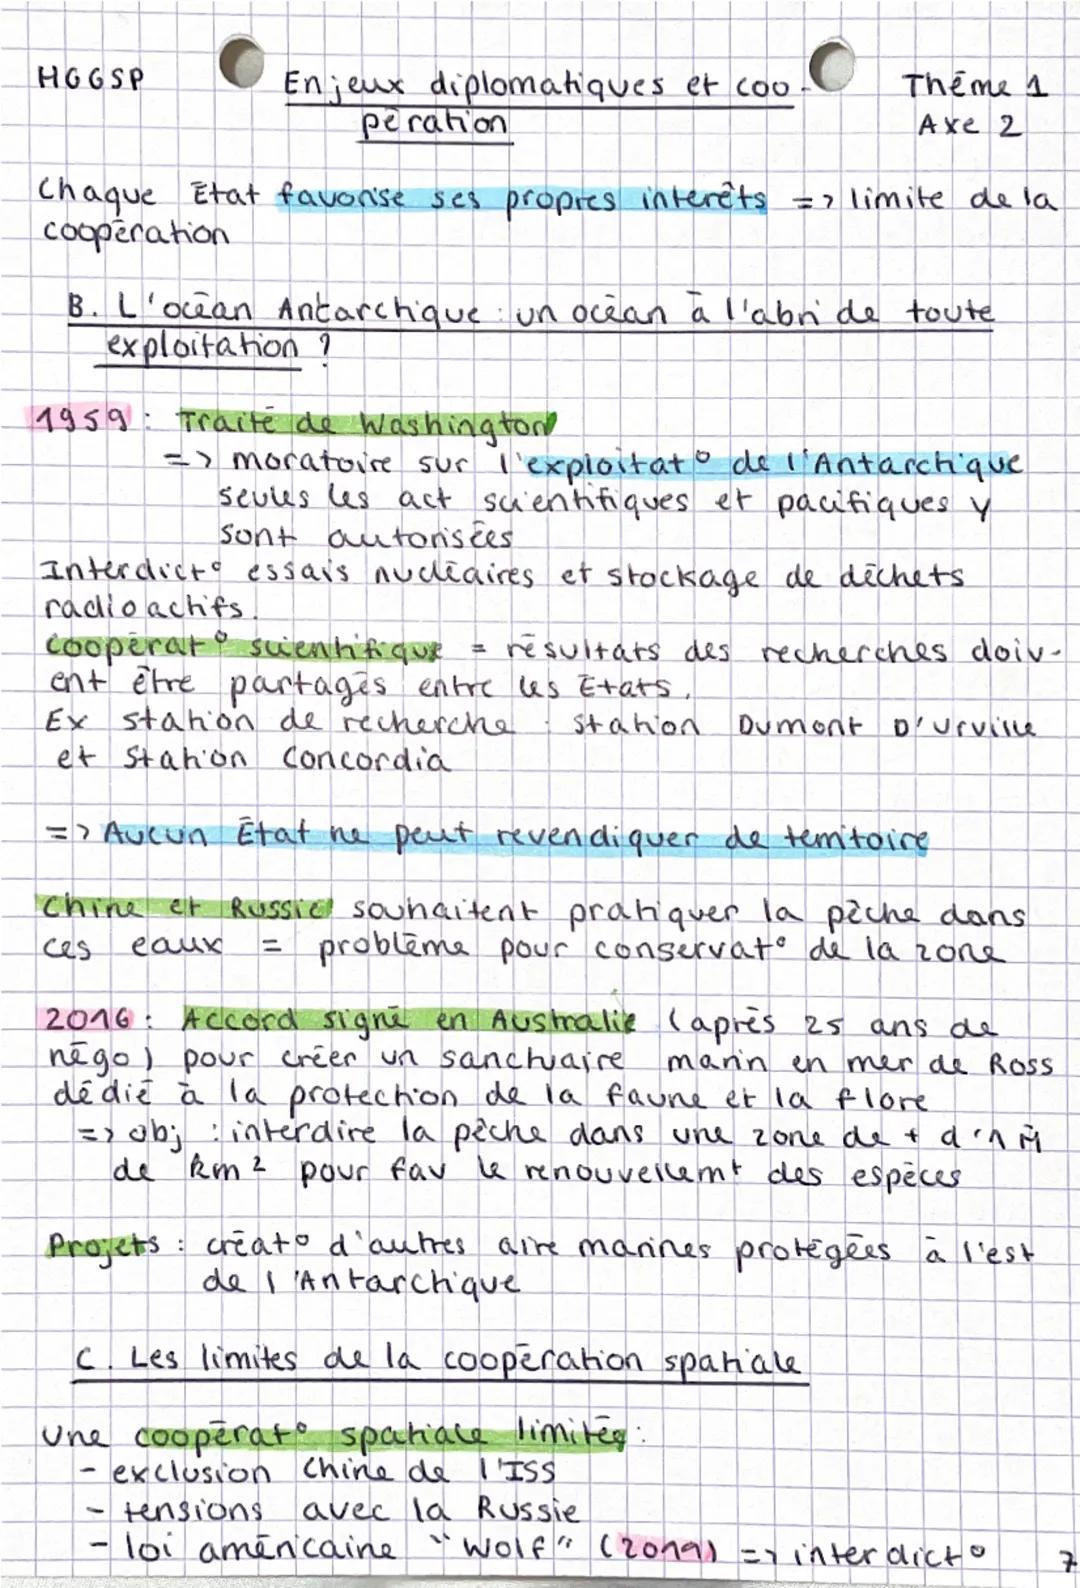 HGGSP
Enjeux diplomatiques et coo-
pération
Thème 1
Axe 2
Chaque État favorise ses propres interêts => limite de la
coopération
B. L'océan Antarctique : un océan à l'abri de toute
exploitation ?
1959 : Traité de Washington
=> moratoire sur l'exploitat° de l'Antarctique
seules les act scientifiques et pacifiques y
sont autorisées
Interdict° essais nucléaires et stockage de déchets
radioactifs.
Coopérat° scientifique = résultats des recherches doiv-
ent être partagés entre les États.
Ex station de recherche : station Dumont D'urville
et Station Concordia
=> Aucun État ne peut revendiquer de territoire
Chine et Russie souhaitent pratiquer la pêche dans
ces eaux = problème pour conservat° de la zone
2016 : Accord signé en Australie (après 25 ans de
négo) pour créer un sanctuaire marin en mer de Ross
dédié à la protection de la faune et la flore
=> obj : interdire la pêche dans une zone de + d'1 M
de km² pour fav le renouvellemt des espèces
Projets : créat° d'autres aire marines protégées à l'est
de l'Antarctique
C. Les limites de la coopération spatiale
Une coopérat° spatiale limitée :
- exclusion Chine de l'ISS
- tensions avec la Russie
- loi américaine "Wolf" (2011) => interdict°
7